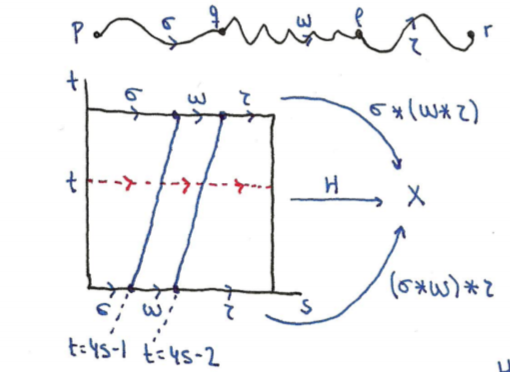 p σ q ω p τ r
t σ ω τ
σ*(ω*τ)
t H X
(σ*ω)*τ
σ ω τ s
t=4s-1 t=4s-2